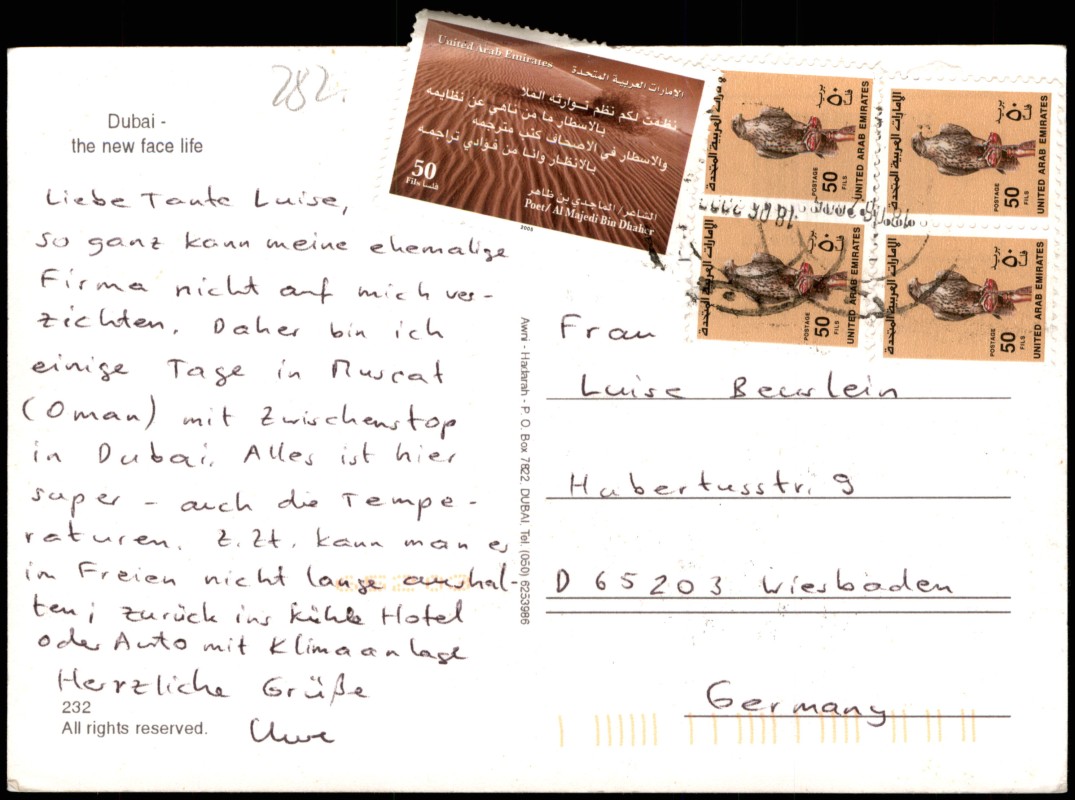 282.
Dubai -
the new face life
Liebe Tante Luise,
so ganz kann meine ehemalige
Firma nicht auf mich ver-
zichten. Daher bin ich
einige Tage in Muscat
(Oman) mit Zwischenstop
in Dubai. Alles ist hier
super - auch die Tempe-
raturen. Z.Zt. kann man es
im Freien nicht lange aushal-
ten; zurück ins kühle Hotel
oder Auto mit Klimaanlage
Herzliche Grüße
Uwe
232
All rights reserved.
Awni - Hadarah - P. O. Box 7822, DUBAI, Tel. (050) 6253986
United Arab Emirates
الإمارات العربية المتحدة
نظمت لكم نظم توارثه الملا
بالاسطار ما من ناهي عن نظايمه
والاسطار في الاصحاف كتب مترجمه
بالانظار وانا من فوادي تراجمه
50
Fils فلسا
الشاعر/ الماجدي بن ظاهر
Poet/ Al Majedi Bin Dhaher
الإمارات العربية المتحدة
بريد
٥٠
فلسا
POSTAGE
50
FILS
UNITED ARAB EMIRATES
الإمارات العربية المتحدة
بريد
٥٠
فلسا
POSTAGE
50
FILS
UNITED ARAB EMIRATES
الإمارات العربية المتحدة
بريد
٥٠
فلسا
POSTAGE
50
FILS
UNITED ARAB EMIRATES
الإمارات العربية المتحدة
بريد
٥٠
فلسا
POSTAGE
50
FILS
UNITED ARAB EMIRATES
Frau
Luise
Hubertusstr. 9
D 65203 Wiesbaden
Germany